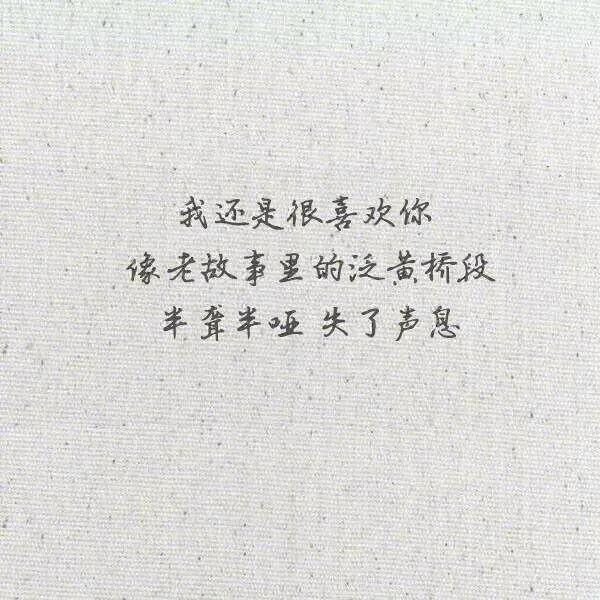 我还是很喜欢你
像老故事里的泛黄桥段
半聋半哑 失了声息